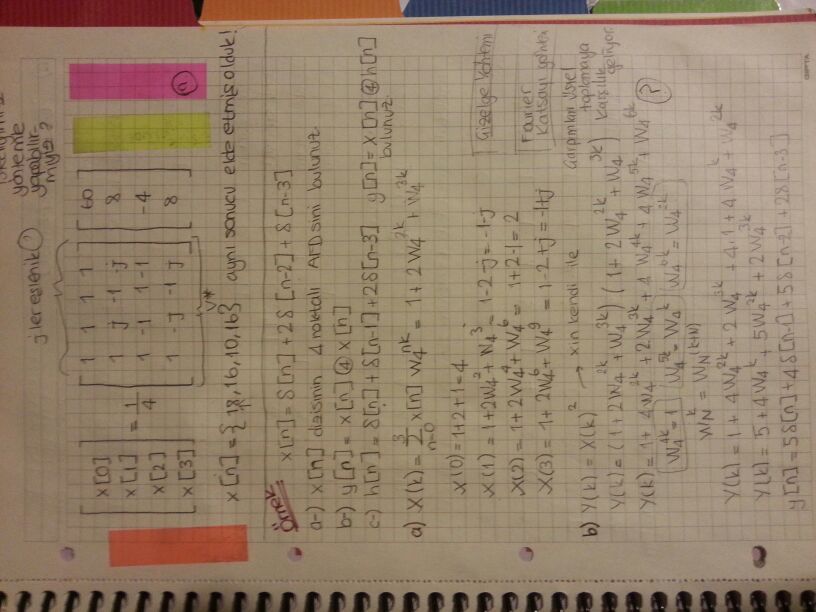 yönteme
yapabilir
miyiz?
j ler eşlenik
[x[0] x[1] x[2] x[3]] = 1/4 [1 1 1 1; 1 j -1 -j; 1 -1 1 -1; 1 -j -1 j] [60 8 -4 8]
V*
x[n] = {18,16,10,16} aynı sonucu elde etmiş olduk!
a
Örnek
x[n] = δ[n] + 2δ[n-2] + δ[n-3]
a-) x[n] dizisinin 4 noktalı AFD sini bulunuz
b-) y[n] = x[n] ④ x[n]
c-) h[n] = δ[n] + δ[n-1] + 2δ[n-3] y[n] = x[n] ④ h[n]
bulunuz.
a) X(k) = Σ_{n=0}^{3} x[n] W_4^{nk} = 1 + 2W_4^{2k} + W_4^{3k}
X(0) = 1+2+1 = 4
X(1) = 1+2W_4^2 + W_4^3 = 1-2+j = -1+j
X(2) = 1+2W_4^4 + W_4^6 = 1+2-1 = 2
X(3) = 1+2W_4^6 + W_4^9 = 1-2-j = -1-j
Çizelge Yöntemi
Fourier
Katsayı yöntemi
b) Y(k) = X(k)^2 → x in kendi ile
çarpımları üssel
toplamaya
karşılık
geliyor.
Y(k) = (1+2W_4^{2k} + W_4^{3k}) (1+2W_4^{2k} + W_4^{3k})
Y(k) = 1 + 4W_4^{2k} + 2W_4^{3k} + 4W_4^{4k} + 4W_4^{5k} + W_4^{6k} ?
W_4^{4k} = 1 W_4^{5k} = W_4^k W_4^{6k} = W_4^{2k}
W_N^k = W_N^{(k+N)}
Y(k) = 1 + 4W_4^{2k} + 2W_4^{3k} + 4.1 + 4W_4^k + W_4^{2k}
Y(k) = 5 + 4W_4^k + 5W_4^{2k} + 2W_4^{3k}
y[n] = 5δ[n] + 4δ[n-1] + 5δ[n-2] + 2δ[n-3]